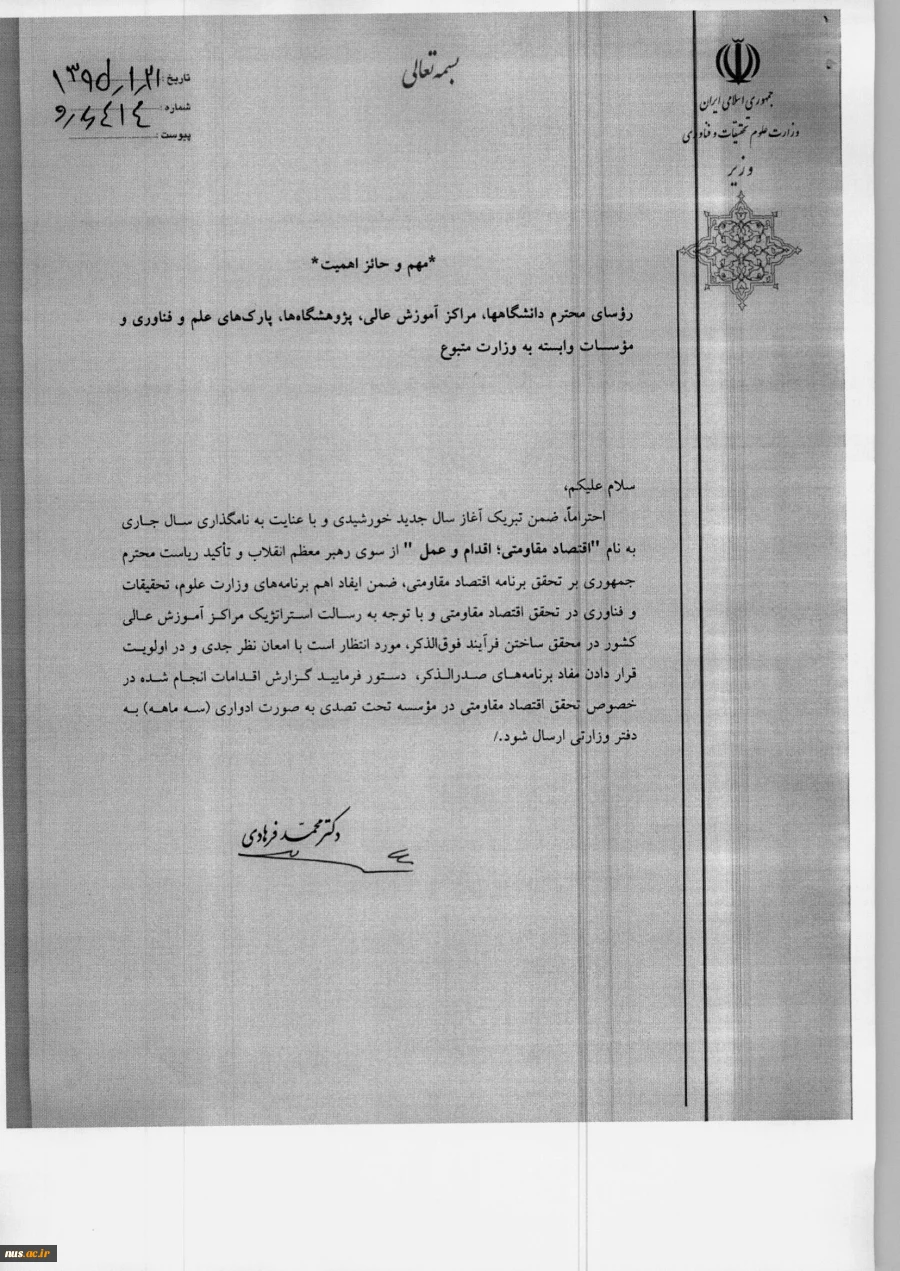 بسمه تعالی
جمهوری اسلامی ایران
وزارت علوم تحقیقات و فناوری
وزیر
تاریخ: ۱۳۹۵,۱,۲۱
شماره:
پیوست:
*مهم و حائز اهمیت*
رؤسای محترم دانشگاهها، مراکز آموزش عالی، پژوهشگاه‌ها، پارک‌های علم و فناوری و
مؤسسات وابسته به وزارت متبوع
سلام علیکم،
احتراماً، ضمن تبریک آغاز سال جدید خورشیدی و با عنایت به نامگذاری سال جاری
به نام "اقتصاد مقاومتی؛ اقدام و عمل " از سوی رهبر معظم انقلاب و تأکید ریاست محترم
جمهوری بر تحقق برنامه اقتصاد مقاومتی، ضمن ایفاد اهم برنامه‌های وزارت علوم، تحقیقات
و فناوری در تحقق اقتصاد مقاومتی و با توجه به رسالت استراتژیک مراکز آموزش عالی
کشور در محقق ساختن فرآیند فوق‌الذکر، مورد انتظار است با امعان نظر جدی و در اولویت
قرار دادن مفاد برنامه‌های صدرالذکر، دستور فرمایید گزارش اقدامات انجام شده در
خصوص تحقق اقتصاد مقاومتی در مؤسسه تحت تصدی به صورت ادواری (سه ماهه) به
دفتر وزارتی ارسال شود./
دکتر محمّد فرهادی
nus.ac.ir